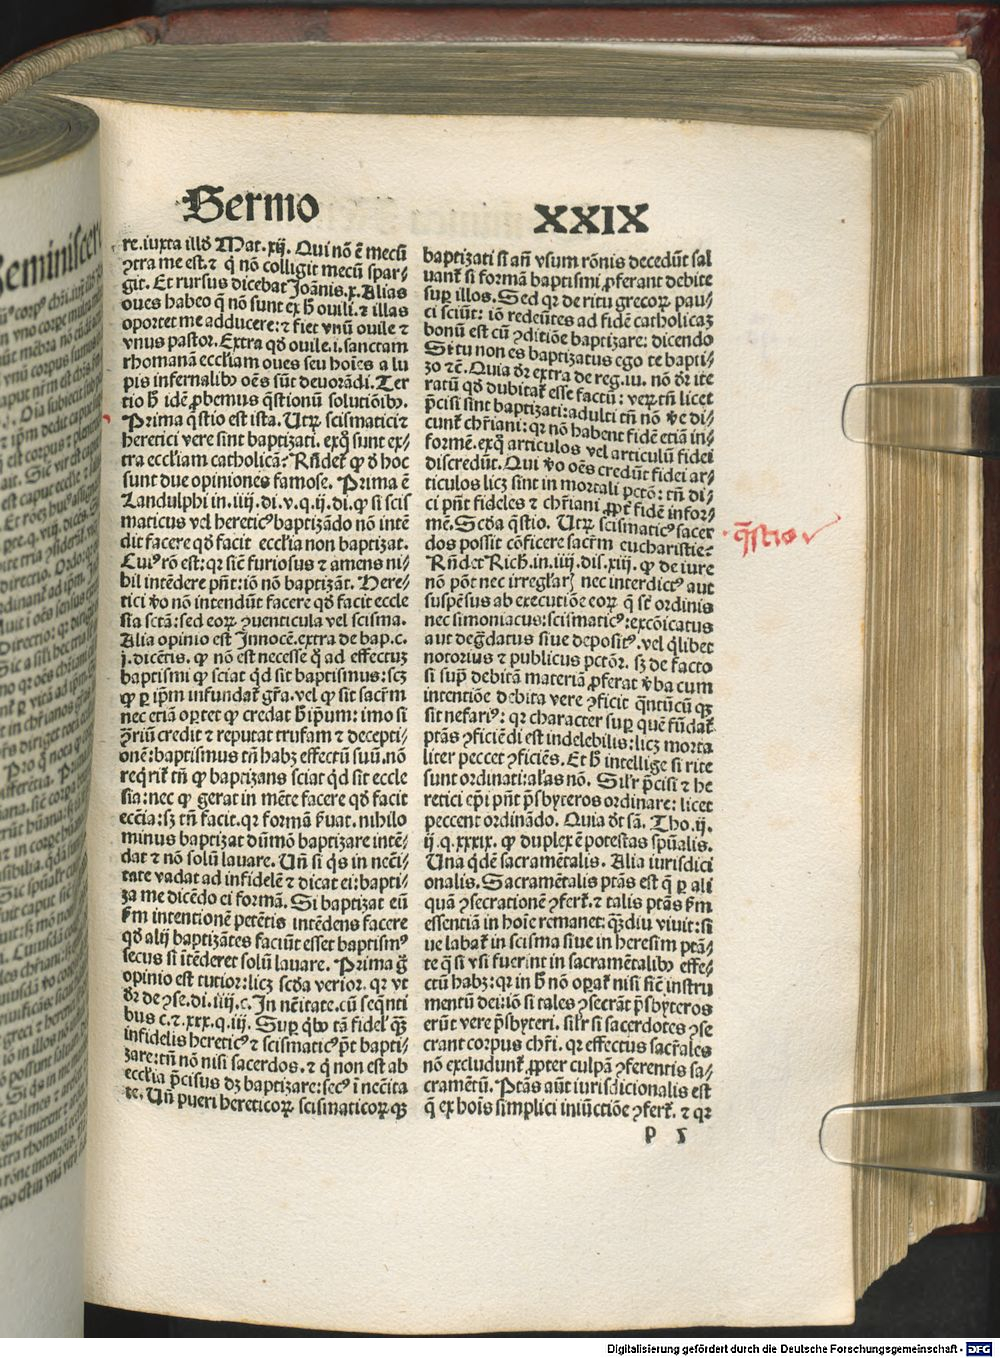 Sermo XXIX
re. iuxta illđ Mat. xij. Qui nō ē mecū
ꝯtra me est. ⁊ q̇ nō colligit mecū spar⸗
git. Et rursus dicebat Joānis. x. Alias
oues habeo q̄ nō sunt ex ħ ouili. ⁊ illas
oportet me adducere: ⁊ fiet vnū ouile ⁊
vnus pastor. Extra qđ ouile. i. sanctam
rhomanā eccl̄iam oues seu hoīes a lu
pis infernalibꝰ oēs sūt deuorādi. Ter
tio ħ idē ꝓbemus q̄stionū solutiōibꝰ.
Prima q̄stio est ista. Utꝝ scismatici ⁊
heretici vere sint baptizati. exq̊ sunt ex⸗
tra eccl̄iam catholicā? Rn̄det͛ ꝙ đ hoc
sunt due opiniones famose. Prima ē
Landulphi in. iiij. di. v. q. ij. di. ꝙ si scis
maticus vel hereticꝰ baptizādo nō intē
dit facere qđ facit eccl̄ia non baptizat.
Cuiꝰ rō est: qꝛ sic̄ furiosus ⁊ amens ni⸗
hil intēdere pn̄t: iō nō baptizāt. Here⸗
tici v̊o nō intendūt facere qđ facit eccle
sia sctā: sed eoꝝ ꝯuenticula vel scisma.
Alia opinio est Innocē. extra de bap. c.
j. dicētis. ꝙ nō est necesse q̊ ad effectuꝫ
baptismi ꝙ sciat qͥd sit baptismus: scꝫ
ꝙ ꝑ ip̄m infundat͛ gr̄a. vel ꝙ sit sacr̄m
nec etiā oꝑtet ꝙ credat ħ ip̄um: imo si
ꝯ̄riū credit ⁊ reputat trufam ⁊ decepti⸗
onē: baptismus tn̄ habꝫ effectū suū. nō
req̇rit͛ tn̄ ꝙ baptizans sciat qͥd sit eccle
sia: nec ꝙ gerat in mēte facere qđ facit
ecc̄ia: sꝫ tn̄ facit. qꝛ formā ẜuat. nihilo
minus baptizat dūmō baptizare intē⸗
dat ⁊ nō solū lauare. Un̄ si q̇s in nec̄i⸗
tate vadat ad infidelē ⁊ dicat ei: bapti⸗
za me dicēdo ei formā. Si baptizat eū
ẜm intentionē petētis intēdens facere
qđ alij baptizātes faciūt esset baptismꝰ
secus si ītēderet solū lauare. Prima g̊
opinio est tutior: licꝫ scđa verior. qꝛ vt
đr de ꝯse. di. iiij. c. In nec̄itate. cū seq̄nti
bus c. ⁊. xxx. q. iij. Suꝑ q̇bꝰ tā fidelꝭ q̄ꝫ
infidelis hereticꝰ ⁊ scismaticꝰ pōt bapti⸗
zare: tn̄ nō nisi sacerdos. ⁊ q̇ non est ab
eccl̄ia p̄cisus dꝫ baptizare: secꝰ ī nec̄ita
te. Un̄ pueri hereticoꝝ scismaticoꝝ qꝫ
baptizati si an̄ vsum rōnis decedūt sal
uant͛ si formā baptismi ꝓferant debite
suꝑ illos. Sed qꝛ de ritu grecoꝝ pau⸗
ci sciūt: iō redeūtes ad fidē catholicaꝫ
bonū est cū ꝯditiōe baptizare: dicendo
Si tu non es baptizatus ego te bapti⸗
zo ⁊c̄. Quia đr extra de reg. iu. nō đr ite
ratū qđ dubitat͛ esse factū: veꝝ tn̄ licet
p̄cisi sint baptizati: adulti tn̄ nō v̊e di⸗
cunt͛ chr̄iani: qꝛ nō habent fidē etiā in⸗
formē. exq̊ articulos vel articulū fidei
discredūt. Qui v̊o oēs credūt fidei ar⸗
ticulos licꝫ sint in mortali pctō: tn̄ di⸗
ci pn̄t fideles ⁊ chr̄iani ꝓpt͛ fidē infor⸗
mē. Scđa q̄stio. Utꝝ scismaticꝰ sacer
dos possit cōficere sacr̄m eucharistie?
Rn̄det Rich. in. iiij. dis. xiij. ꝙ de iure
nō pōt nec irregl̄arꝭ nec interdictꝰ aut
suspēsus ab executiōe eoꝝ q̄ st̄ ordinis
nec simoniacus: scismaticꝰ: excōicatus
aut degͣdatus siue depositꝰ. vel q̇libet
notorius ⁊ publicus pctōr. sꝫ de facto
si suꝑ debitā materiā ꝓferat v̊ba cum
intentiōe debita vere ꝯficit q̄ntūcū qꝫ
sit nefariꝰ: qꝛ character suꝑ quē fūdat͛
ptās ꝯficiēdi est indelebilis: licꝫ morta
liter peccet ꝯficiēs. Et ħ intellige si rite
sunt ordinati: al̄as nō. Silr̄ p̄cisi ⁊ he
retici ep̄i pn̄t p̄sbyteros ordinare: licet
peccent ordinādo. Quia đt sā. Tho. ij.
ij. q. xxxix. ꝙ duplex ē potestas spūalis.
Una q̇dē sacramētalis. Alia iurisdici
onalis. Sacramētalis ptās est q̄ ꝑ ali
quā ꝯsecrationē ꝯfert͛. ⁊ talis ptās ẜm
essentiā in hoīe remanet: q̄ꝫdiu viuit: si
ue labat͛ in scisma siue in heresim ptā⸗
te q̄ si vsi fuerint in sacramētalibꝰ effe⸗
ctū habꝫ: qꝛ in ħ nō oꝑat͛ nisi sic̄ instru
mentū dei: iō si tales ꝯsecrāt p̄sbyteros
erūt vere p̄sbyteri. silr̄ si sacerdotes ꝯse
crant corpus chr̄i. qꝛ effectus sacr̄ales
nō excludunt͛ ꝓpter culpā ꝯferentis sa⸗
cramētū. Ptās aūt iurisdicionalis est
q̄ ex hoīs simplici iniūctiōe ꝯfert͛. ⁊ qꝛ
p 5
q̄stio
Digitalisierung gefördert durch die Deutsche Forschungsgemeinschaft - DFG